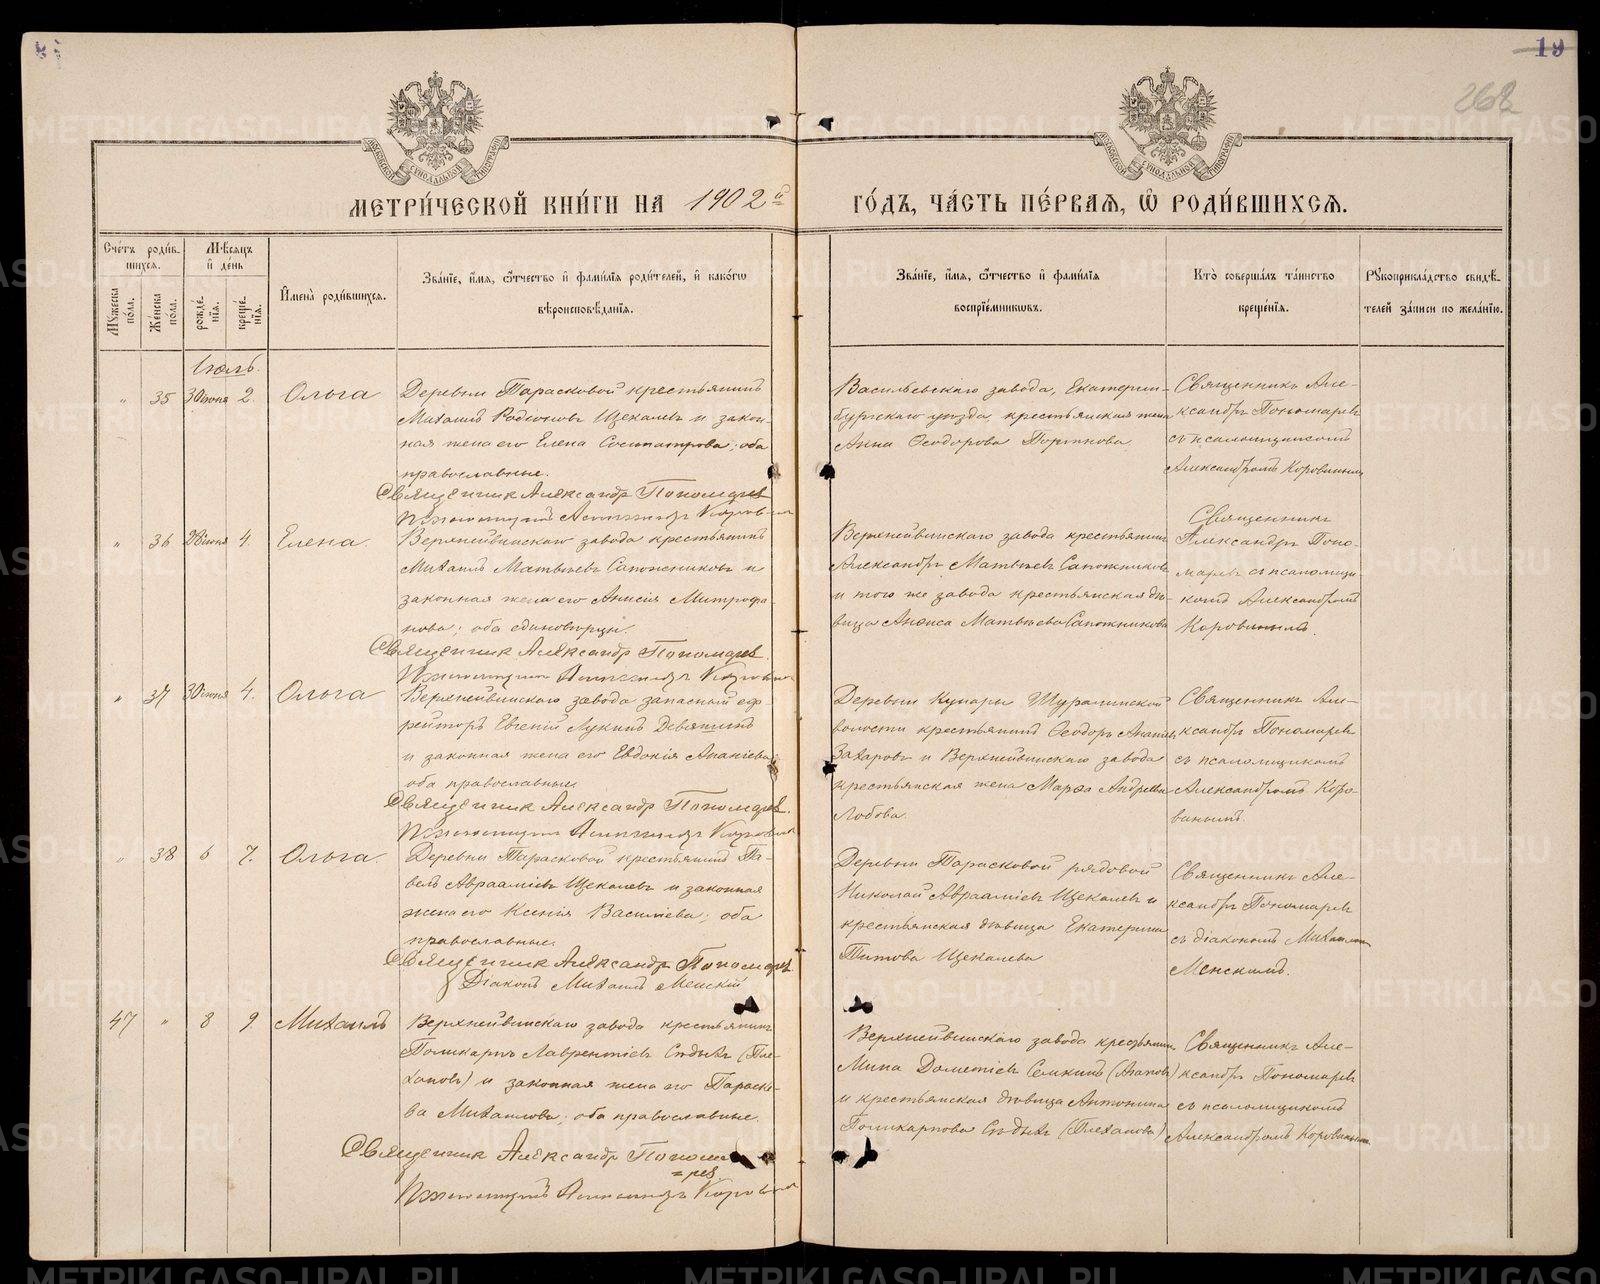 19
268
МЕТРИ́ЧЕСКОЙ КНИ́ГИ НА 1902й ГО́ДЪ, ЧА́СТЬ ПЕ́РВАЯ, Ѡ҆ РОДИ́ВШИХСЯ.
Сче́тъ роди́в-
шихся.
Мѣ́сяцъ
и҆ де́нь
Му́жеска по́ла.
Же́нска по́ла.
рожде́нїя.
креще́нїя.
И҆мена̀ роди́вшихся.
Зва́нїе, и҆́мя, ѻ҆́тчество и҆ фами́лїя роди́телей, и҆ како́гѡ
вѣроисповѣ́данїя.
Зва́нїе, и҆́мя, ѻ҆́тчество и҆ фами́лїя
воспрїе́мниковъ.
Кто̀ соверша́лъ та́инство
креще́нїя.
Рукоприкла́дство свидѣ́-
телей за́писи по жела́нїю.
Іюль.
" 35 30 июня 2. Ольга
Деревни Тарасковой крестьянинъ
Михаилъ Родіоновъ Щекалевъ и закон-
ная жена его Елена Сосипатрова; оба
православные.
Священник Александр Пономарев
Васильевскаго завода, Екатерин-
бургскаго уезда крестьянская жена
Анна Ѳеодорова
Священникъ Але-
ксандръ Пономаревъ
съ псаломщикомъ
Александромъ Корованнымъ
" 36 28 июня 4. Елена
Верхнейвинскаго завода крестьянинъ
Михаилъ Матвѣевъ Сапожниковъ и
законная жена его Анисія Митрофа-
нова; оба единовѣрцы.
Священник Александр Пономарев.
Верхнейвинскаго завода крестьянинъ
Александръ Матвѣевъ Сапожниковъ
и того же завода крестьянская дѣ-
вица Анфиса Матвѣева Сапожникова
Священникъ
Александръ Поно-
маревъ съ псаломщи-
комъ Александромъ
Корованнымъ.
" 37 30 июня 4. Ольга
Верхнейвинскаго завода запасный еф-
рейторъ Евгеній Лукинъ Девяткинъ
и законная жена его Евдокія Ананіева;
оба православные.
Священник Александр Пономарев.
Деревни Кунары Шуралинской
волости крестьянинъ Ѳеодоръ
Захаровъ и Верхнейвинскаго завода
крестьянская жена Марѳа Андреева
Лобова.
Священникъ Але-
ксандръ Пономаревъ
съ псаломщикомъ
Александромъ Коро-
ваннымъ.
" 38 6 7. Ольга.
Деревни Тарасковой крестьянинъ Па-
велъ Авраамíевъ Щекалевъ и законная
жена его Ксенія Василіева; оба
православные.
Священник Александр Пономарев
Діаконъ Михаилъ Менскій
Деревни Тарасковой рядовой
Николай Авраамíевъ Щекалевъ и
крестьянская дѣвица Екатерина
Титова Щекалева
Священникъ Але-
ксандръ Пономаревъ
съ діакономъ Михаиломъ
Менскимъ.
47 " 8 9. Михаилъ
Верхнейвинскаго завода крестьянинъ
Поликарпъ Лаврентіевъ Сѣдыхъ (Пле-
хановъ) и законная жена его Параске-
ва Михаилова; оба православные.
Священник Александр Понома
=рев
Верхнейвинскаго завода крестьянинъ
Мина Дометіевъ Семкинъ (Агаповъ)
и крестьянская дѣвица Антонина
Поликарпова Сѣдыхъ (Плеханова)
Священникъ Але-
ксандръ Пономаревъ
съ псаломщикомъ
Александромъ Корованнымъ
METRIKI.GASO-URAL.RU